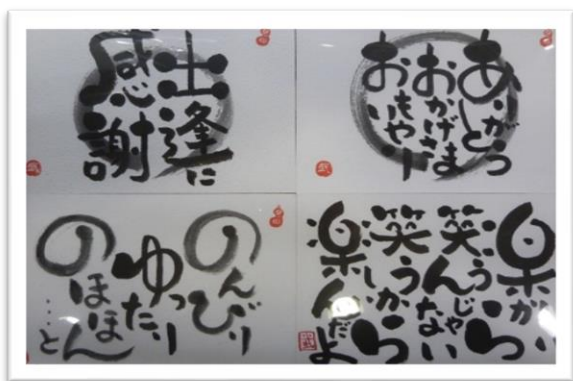 出逢に
感謝
ありがとう
おかげさま
おもいやり
のんびり
ゆったり
のほほん
…と
楽しいから
笑うんじゃない
笑うから
楽しいんだよ